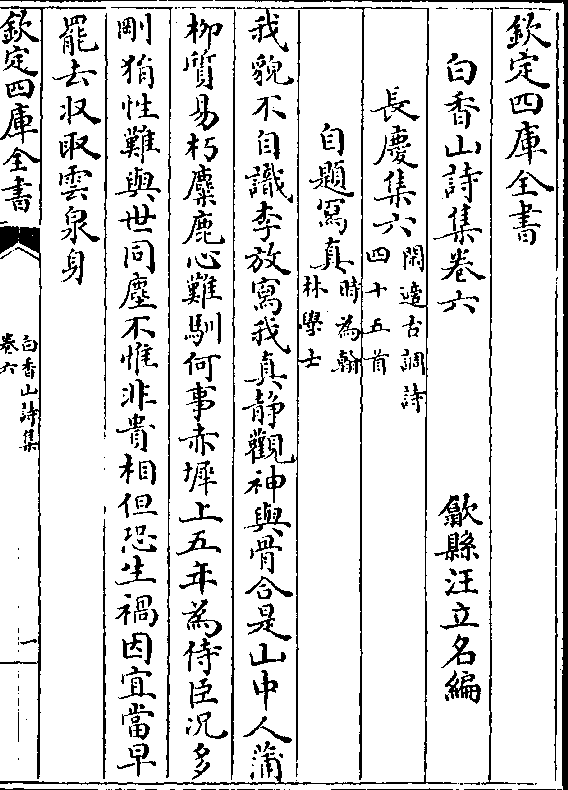 欽定四庫全書
白香山詩集卷六
歙縣汪立名編
長慶集六
閒適古調詩
四十五首
自題寫真
時為翰
林學士
我貌不自識李放寫我真静觀神與骨合是山中人蒲
柳質易朽麋鹿心難馴何事赤墀上五年為侍臣况多
剛狷性難與世同塵不惟非貴相但恐生禍因宜當早
罷去収取雲泉身
欽定四庫全書
白香山詩集
卷六
一